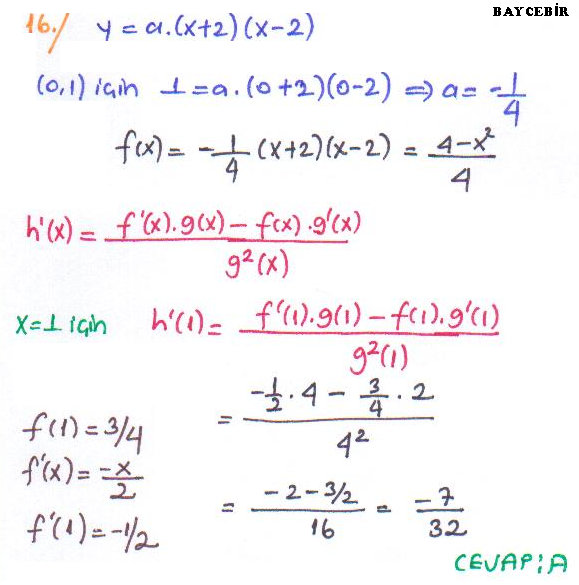 BAYCEBİR
16./ y = a.(x+2)(x-2)
(0,1) için 1 = a.(0+2)(0-2) ⇒ a = -1/4
f(x) = -1/4 (x+2)(x-2) = (4-x²)/4
h'(x) = (f'(x).g(x) - f(x).g'(x))/(g²(x))
x=1 için h'(1) = (f'(1).g(1) - f(1).g'(1))/(g²(1))
= (-1/2 . 4 - 3/4 . 2)/(4²)
f(1) = 3/4
f'(x) = -x/2
f'(1) = -1/2
= (-2 - 3/2)/16 = -7/32
CEVAP:A